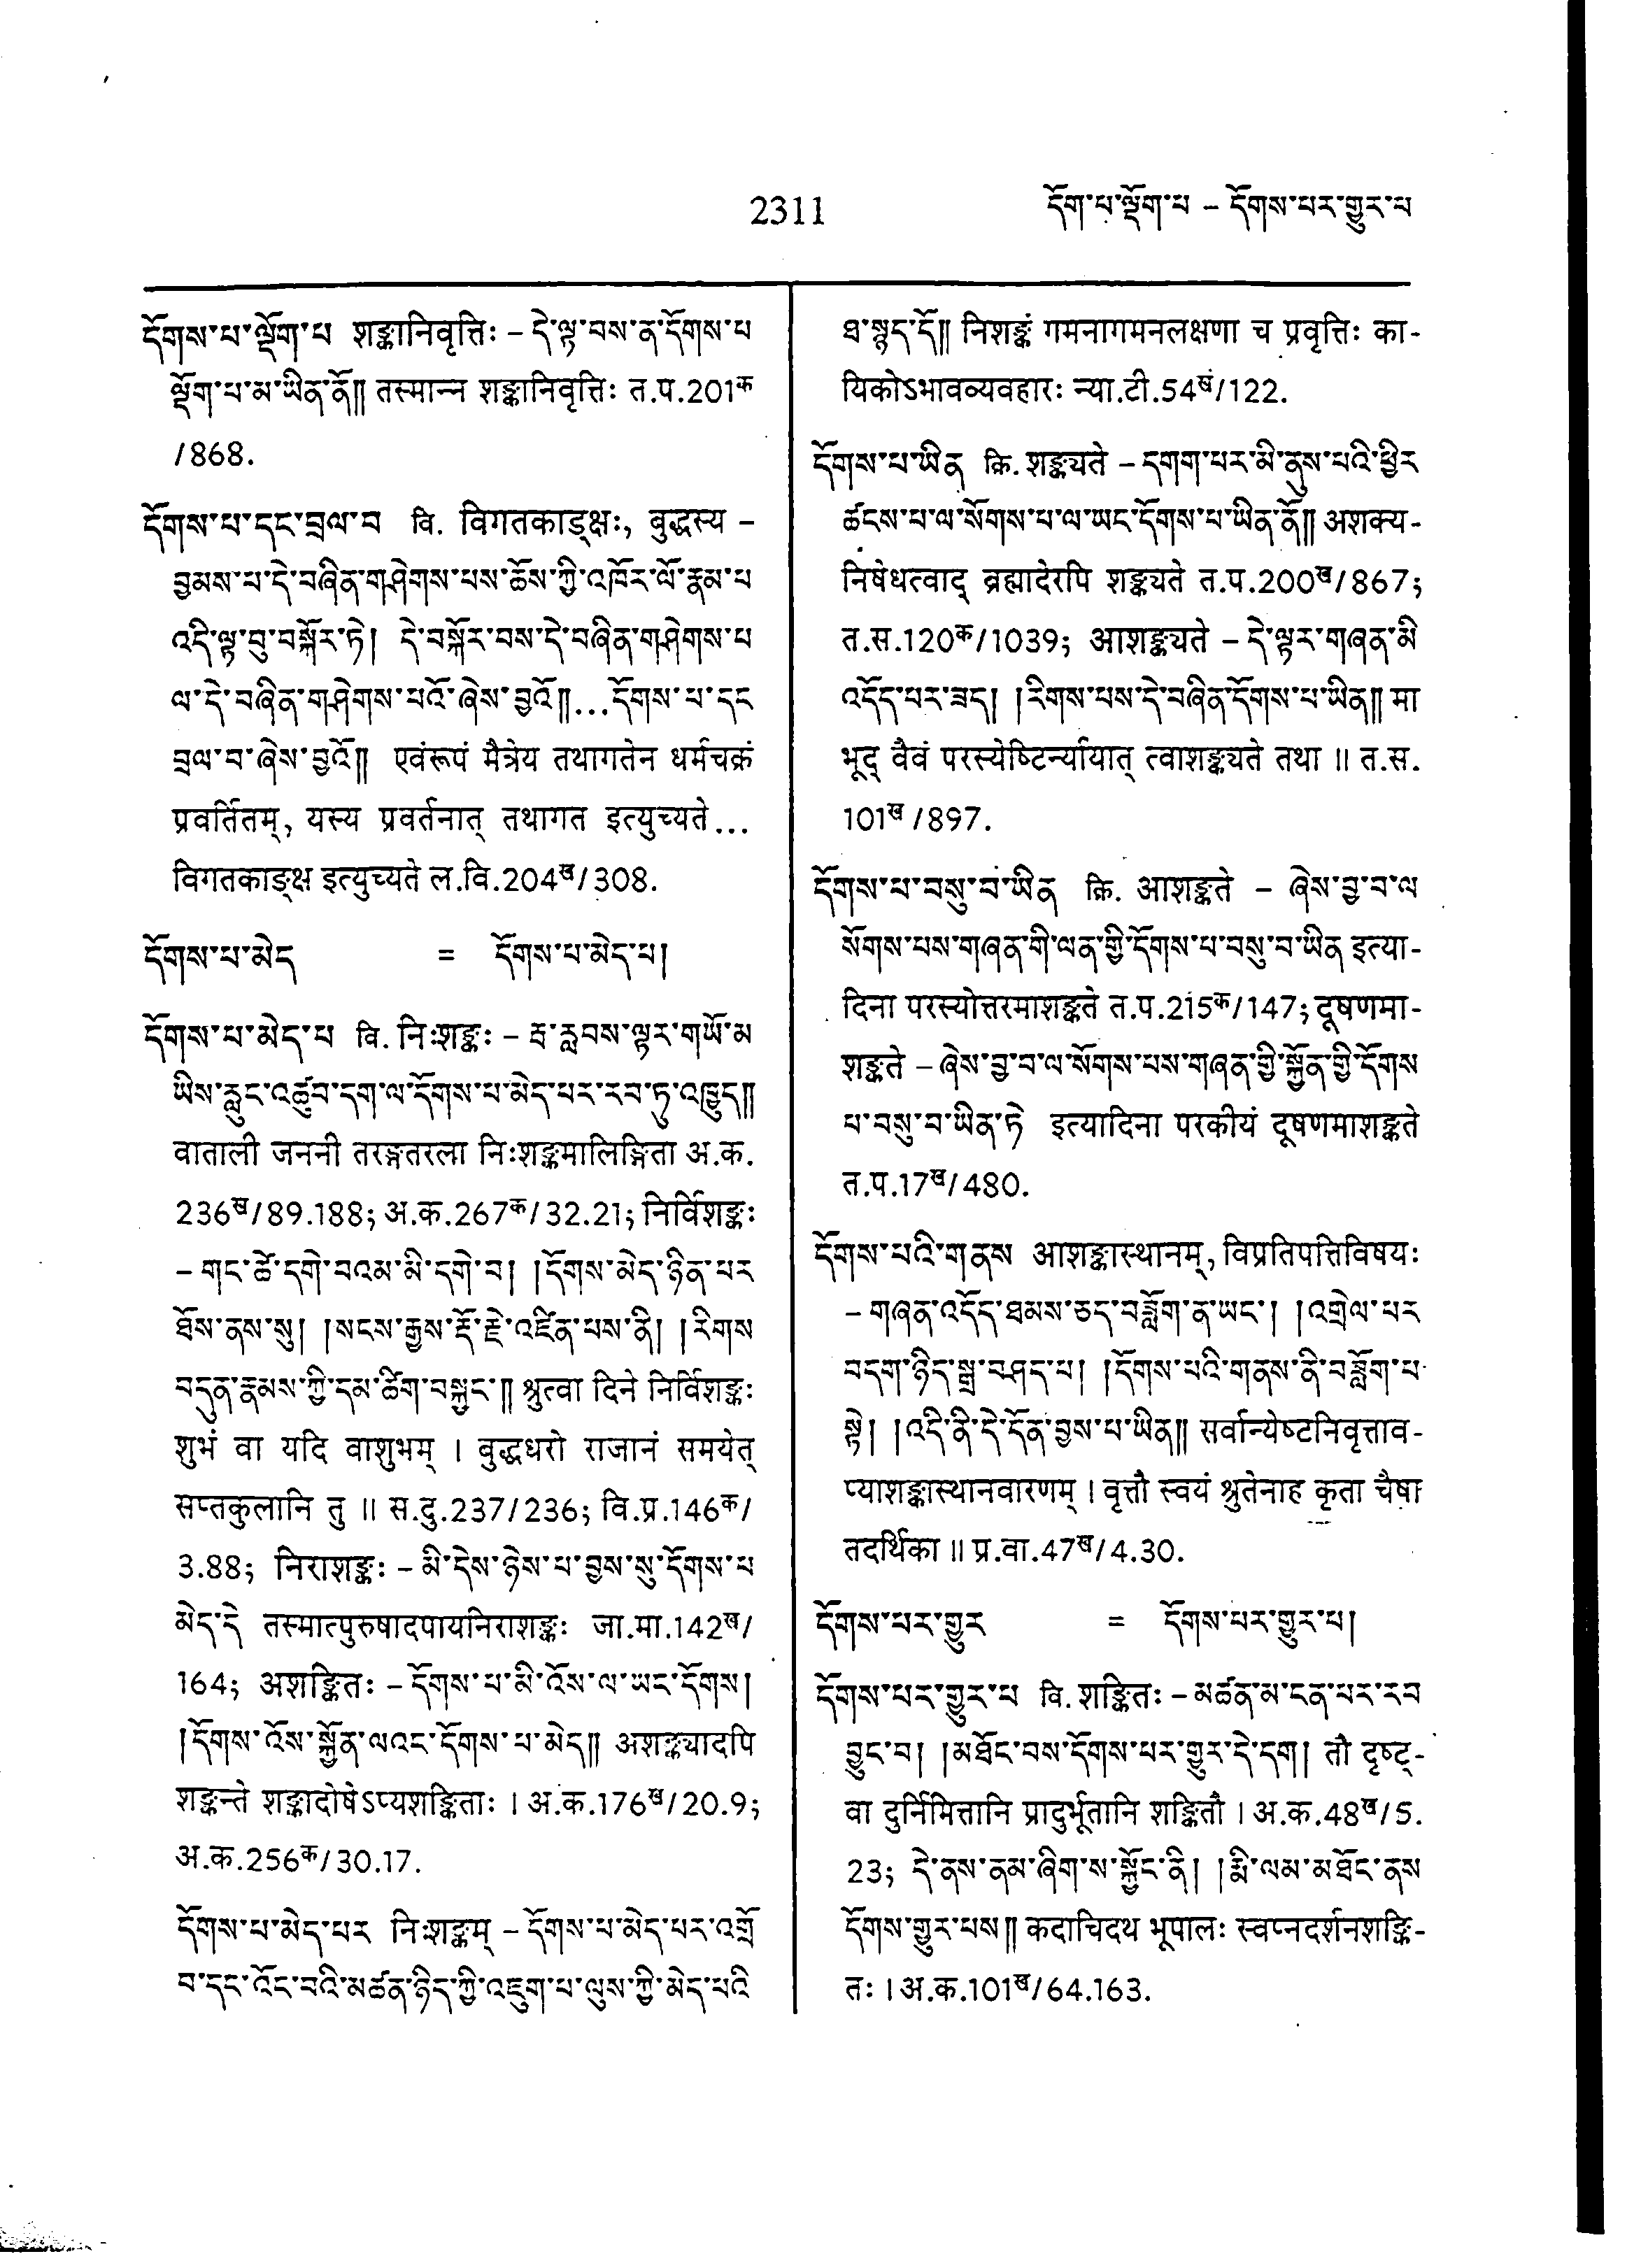 2311
དོག་པ་ལྡོག་པ – དོགས་པར་གྱུར་པ
དོགས་པ་ལྡོག་པ शङ्कानिवृत्तिः – དེ་ལྟ་བས་ན་དོགས་པ
ལྡོག་པ་མ་ཡིན་ནོ།། तस्मान्न शङ्कानिवृत्तिः त.प.201क
/868.
དོགས་པ་དང་བྲལ་བ वि. विगतकाङ्क्षः, बुद्धस्य –
བྱམས་པ་དེ་བཞིན་གཤེགས་པས་ཆོས་ཀྱི་འཁོར་ལོ་རྣམ་པ
འདི་ལྟ་བུ་བསྐོར་ཏེ། དེ་བསྐོར་བས་དེ་བཞིན་གཤེགས་པ
ལ་དེ་བཞིན་གཤེགས་པའོ་ཞེས་བྱའོ།།...དོགས་པ་དང
བྲལ་བ་ཞེས་བྱའོ།། एवंरूपं मैत्रेय तथागतेन धर्मचक्रं
प्रवर्तितम्, यस्य प्रवर्तनात् तथागत इत्युच्यते...
विगतकाङ्क्ष इत्युच्यते ल.वि.204ख/308.
དོགས་པ་མེད = དོགས་པ་མེད་པ།
དོགས་པ་མེད་པ वि. निःशङ्कः – རྦ་རླབས་ལྟར་གཡོ་མ
ཡིས་རླུང་འཚུབ་དག་ལ་དོགས་པ་མེད་པར་རབ་ཏུ་འཁྱུད།།
वाताली जननी तरङ्गतरला निःशङ्कमालिङ्गिता अ.क.
236ख/89.188; अ.क.267क/32.21; निर्विशङ्कः
– གང་ཚེ་དགེ་བའམ་མི་དགེ་བ། །དོགས་མེད་ཉིན་པར
ཐོས་ནས་སུ། །སངས་རྒྱས་རྡོ་རྗེ་འཛིན་པས་ནི། །རིགས
བདུན་རྣམས་ཀྱི་དམ་ཚིག་བསྐྱང་།། श्रुत्वा दिने निर्विशङ्कः
शुभं वा यदि वाशुभम् । बुद्धधरो राजानं समयेत्
सप्तकुलानि तु ॥ स.दु.237/236; वि.प्र.146क/
3.88; निराशङ्कः – མི་དེས་ཉེས་པ་བྱས་སུ་དོགས་པ
མེད་དེ तस्मात्पुरुषादपायनिराशङ्कः जा.मा.142ख/
164; अशङ्कितः – དོགས་པ་མི་འོས་ལ་ཡང་དོགས།
།དོགས་འོས་སྐྱོན་ལའང་དོགས་པ་མེད།། अशङ्क्यादपि
शङ्कन्ते शङ्कादोषेऽप्यशङ्किताः । अ.क.176ख/20.9;
अ.क.256क/30.17.
དོགས་པ་མེད་པར निःशङ्कम् – དོགས་པ་མེད་པར་འགྲོ
བ་དང་འོང་བའི་མཚན་ཉིད་ཀྱི་འཇུག་པ་ལུས་ཀྱི་མེད་པའི
ཐ་སྙད་དོ།། निशङ्कं गमनागमनलक्षणा च प्रवृत्तिः का-
यिकोऽभावव्यवहारः न्या.टी.54ख/122.
དོགས་པ་ཡིན क्रि. शङ्क्यते – དགག་པར་མི་ནུས་པའི་ཕྱིར
ཚངས་པ་ལ་སོགས་པ་ལ་ཡང་དོགས་པ་ཡིན་ནོ།། अशक्य-
निषेधत्वाद् ब्रह्मादेरपि शङ्क्यते त.प.200ख/867;
त.स.120क/1039; आशङ्क्यते – དེ་ལྟར་གཞན་མི
འདོད་པར་ཟད། །རིགས་པས་དེ་བཞིན་དོགས་པ་ཡིན།། मा
भूद् वैवं परस्येष्टिर्न्यायात् त्वाशङ्क्यते तथा ॥ त.स.
101ख/897.
དོགས་པ་བསུ་བ་ཡིན क्रि. आशङ्कते – ཞེས་བྱ་བ་ལ
སོགས་པས་གཞན་གི་ལན་གྱི་དོགས་པ་བསུ་བ་ཡིན इत्या-
दिना परस्योत्तरमाशङ्कते त.प.215क/147; दूषणमा-
शङ्कते – ཞེས་བྱ་བ་ལ་སོགས་པས་གཞན་གྱི་སྐྱོན་གྱི་དོགས
པ་བསུ་བ་ཡིན་ཏེ इत्यादिना परकीयं दूषणमाशङ्कते
त.प.17ख/480.
དོགས་པའི་གནས आशङ्कास्थानम्, विप्रतिपत्तिविषयः
– གཞན་འདོད་ཐམས་ཅད་བཟློག་ན་ཡང་། །འགྲེལ་པར
བདག་ཉིད་སྒྲ་བཤད་པ། །དོགས་པའི་གནས་ནི་བཟློག་པ
སྟེ། །འདི་ནི་དེ་དོན་བྱས་པ་ཡིན།། सर्वान्येष्टनिवृत्ताव-
प्याशङ्कास्थानवारणम् । वृत्तौ स्वयं श्रुतेनाह कृता चैषा
तदर्थिका ॥ प्र.वा.47ख/4.30.
དོགས་པར་གྱུར = དོགས་པར་གྱུར་པ།
དོགས་པར་གྱུར་པ वि. शङ्कितः – མཚན་མ་ངན་པར་རབ
བྱུང་བ། །མཐོང་བས་དོགས་པར་གྱུར་དེ་དག། तौ दृष्ट्-
वा दुर्निमित्तानि प्रादुर्भूतानि शङ्कितौ । अ.क.48ख/5.
23; དེ་ནས་ནམ་ཞིག་ས་སྐྱོང་ནི། །རྨི་ལམ་མཐོང་ནས
དོགས་གྱུར་པས།། कदाचिदथ भूपालः स्वप्नदर्शनशङ्कि-
तः । अ.क.101ख/64.163.